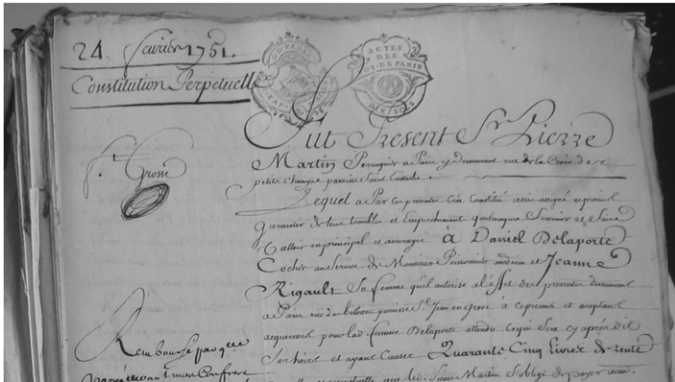 24 fevrier 1751.
Constitution Perpetuelle
ACTES
DES
NO. DE PARIS
DIX SOLS
fut Present Sr. Pierre
ft. Grosse
Martin Perruquier a Paris y demeurant rue de la Croix des
petits Champs paroisse Saint Eustache
Lequel a Par ces presentes Créé Constitué assis assigné et promis
Garantir de tous troubles et Empechements quelconques fournir et faire
Valloir en principal et arrerages à Daniel Delaporte
Cocher au Service de Monsieur medecin et Jeanne
Rigault Sa femme qu'il autorise a l'effet des presentes demeurant
a Paris rue paroisse St. Jean en Greve a ce presents et acceptant
acquereurs pour lad. femme Delaporte attendu ce qui sera cy après dit
Ses hoirs et ayant Cause Quarante Cinq livres de rente
Remboursé par
led. Sieur Martin s'oblige de payer